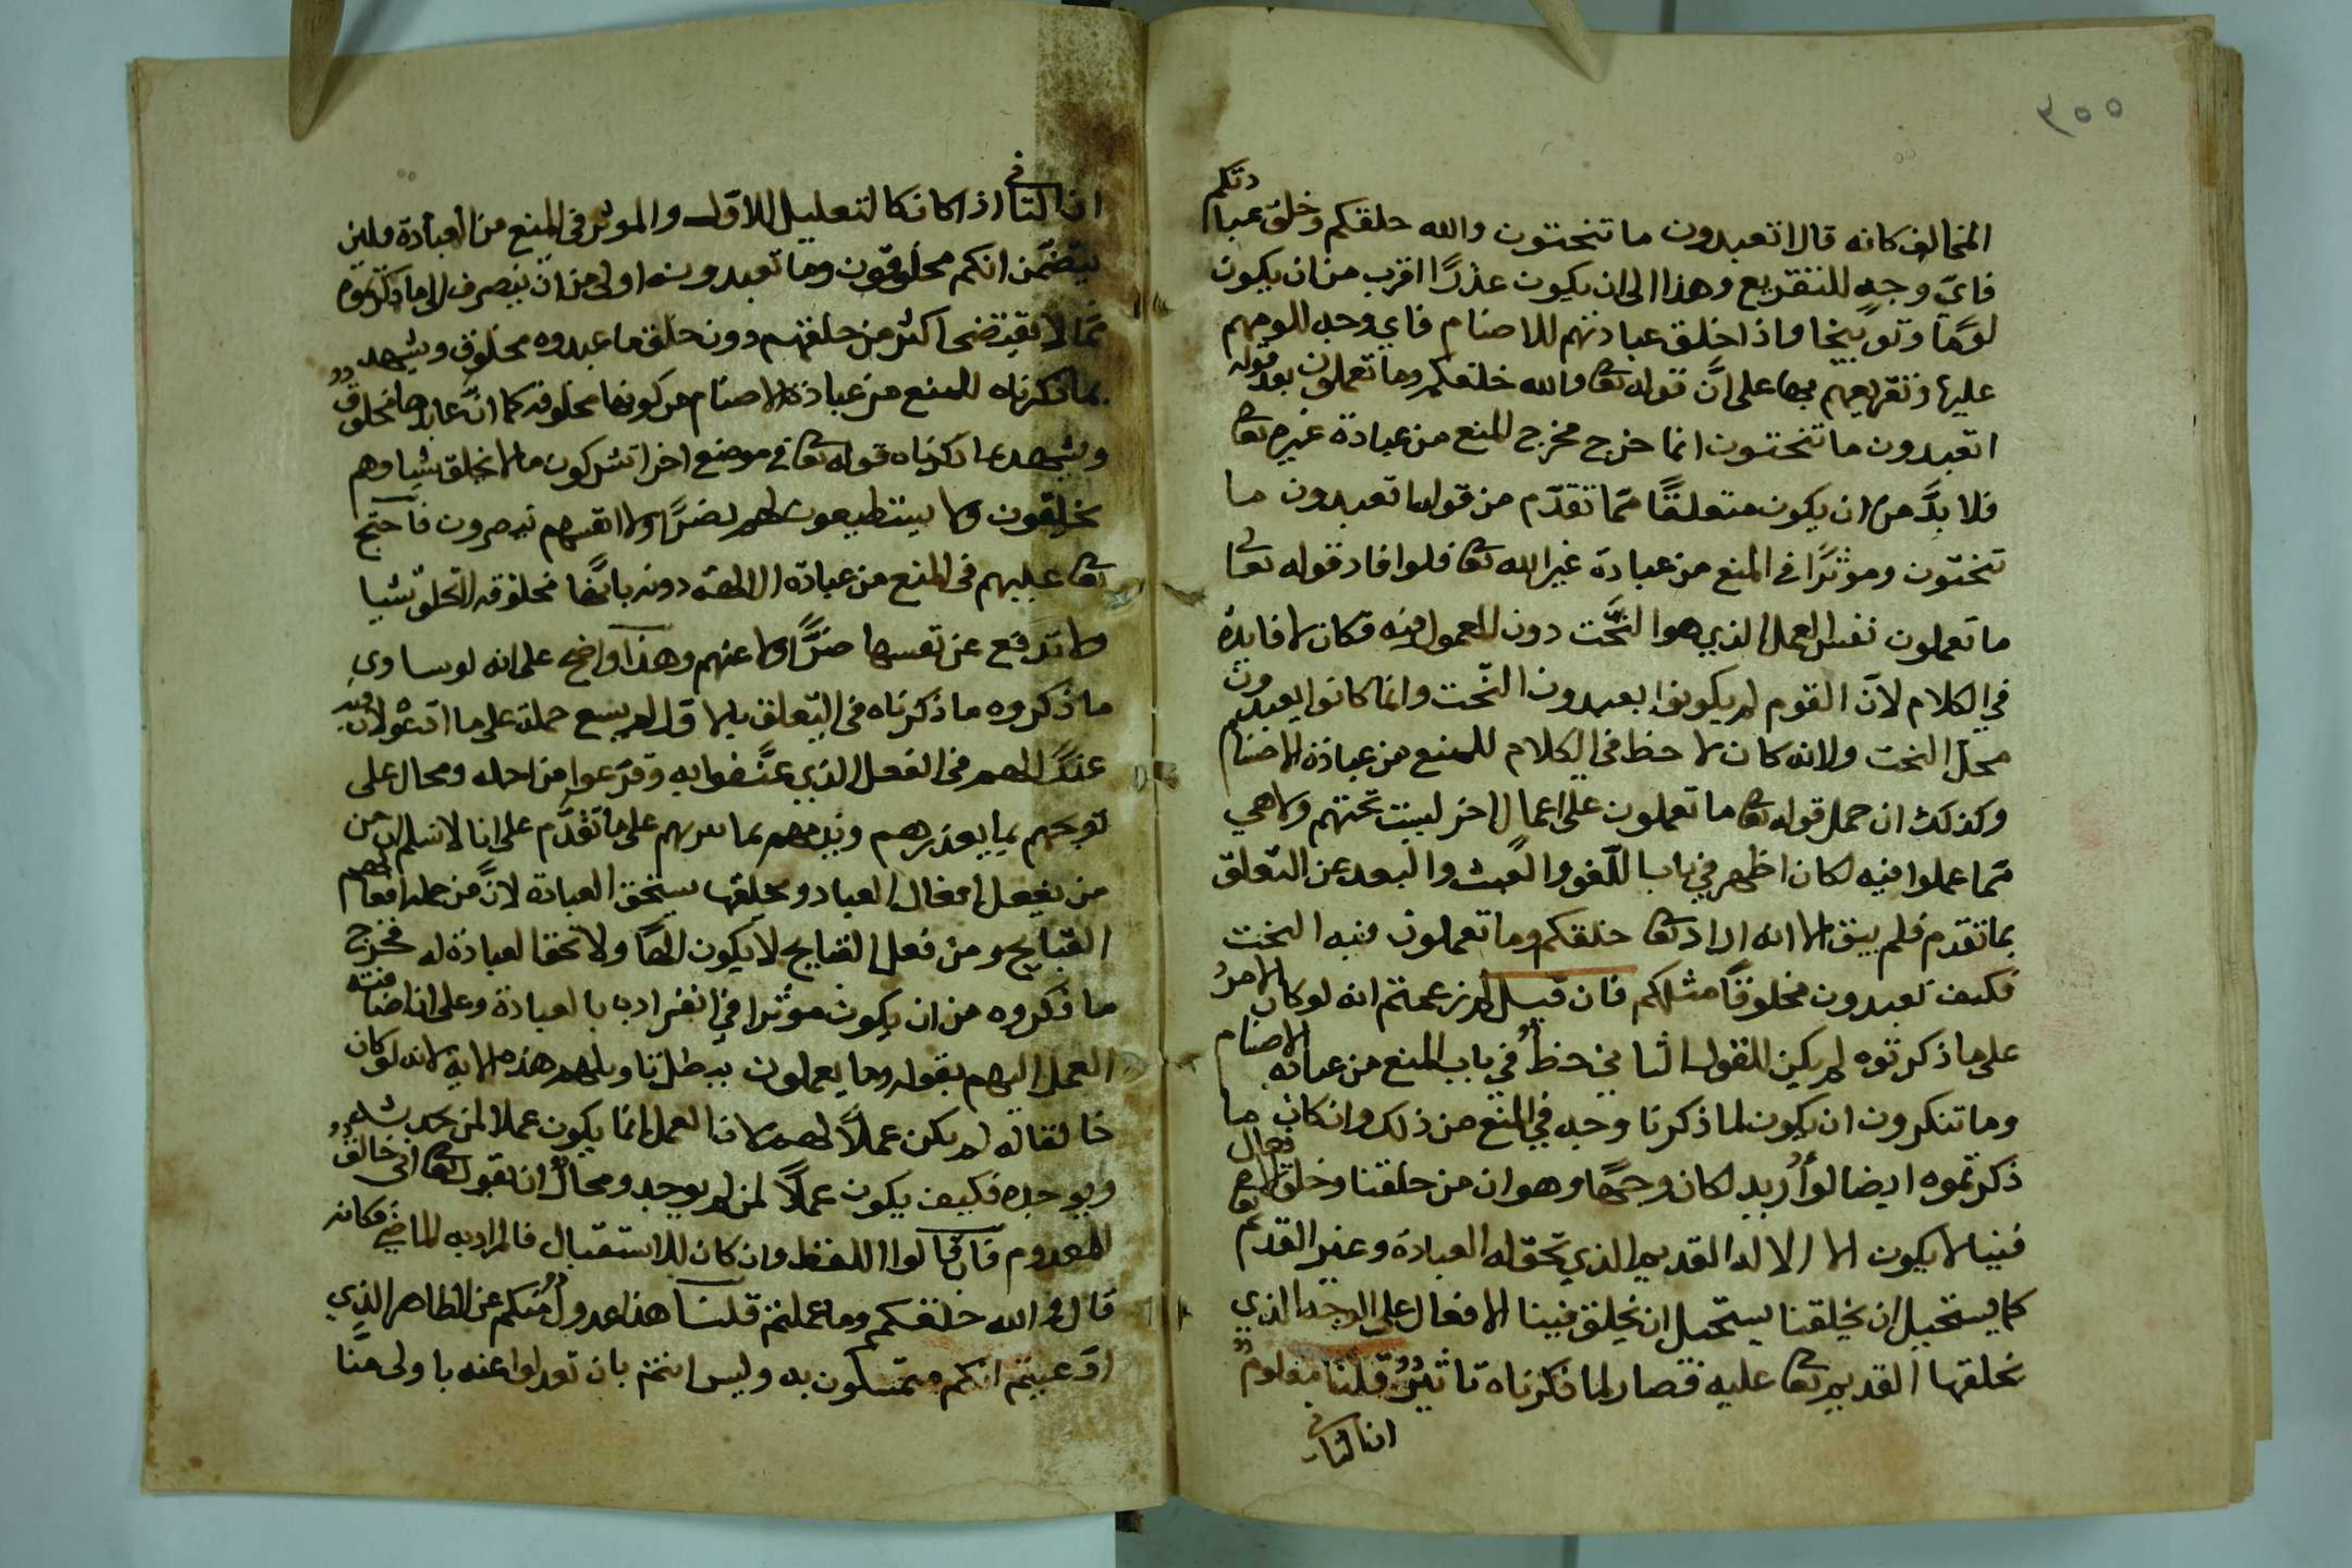 ٣٥٥
المخالف كانه قال اتعبدون ما تنحتون والله خلقكم وخلق عبادتكم
فايّ وجه للتقريع وهذا الى ان يكون عذرًا اقرب من ان يكون
لومًا وتوبيخا واذا خلق عبادتهم للاصنام فاي وجه للومهم
عليها وتقريعهم بها على انَّ قوله تعا والله خلقكم وما تعملون بعد قوله
اتعبدون ما تنحتون انما خرج مخرج المنع من عبادة غيره تعا
فلا بدَّ من ان يكون متعلقًا ممّا تقدّم من قوله اتعبدون ما
تنحتون وموثرًا في المنع من عبادة غير الله تعا فلو افاد قوله تعالى
ما تعملون نفس العمل الذي هو النَّحت دون المعمول فيه فكان لا فايدة
في الكلام لانّ القوم لم يكونوا يعبدون النّحت وانما كانوا يعبدون
محل النحت ولانه كان لا حظ في الكلام للمنع من عبادة الاصنام
وكذلك ان حمل قوله تعا ما تعملون على اعمال اخر ليست نحتهم ولا هي
ممّا عملوا فيه لكان اظهر في باب اللّغو والعبث والبعد عن التعلق
بما تقدم فلم يبق الا انه اراد تعا خلقكم وما تعملون فيه النحت
فكيف تعبدون مخلوقًا مثلكم فان قيل لم زعمتم انه لو كان الامرُ
على ما ذكرتموه لم يكن للقول الثاني حظٌّ في باب المنع من عبادة الاصنام
وما تنكرون ان يكون لما ذكرنا وجه في المنع من ذلك وان كان ما
ذكرتموه ايضا لو أُريد لكان وجهًا وهو ان من خلقنا وخلق الافعال
فينا لا يكون الا الاله القديم الذي تحق له العبادة وغير القديم تعا
كما يستحيل ان يخلقنا يستحيل ان يخلق فينا الافعال على الوجه الذي
يخلقها القديم تعا عليه فصار لما ذكرناه تاثيرٌ قلنا معلومٌ
ان الثاني
ان الثاني اذا كان كالتعليل للاول والموثر في المنع من العبادة فلان
يتضمّن انكم مخلوقون وما تعبدونه اولى من ان ينصرف الى ما ذكرتموه
ممّا لا يقتضى اكثر من خلقهم دون خلق ما عبدوه مخلوق ويشهد
بما ذكرناه للمنع من عبادة الاصنام من كونها مخلوقه كما انَّ عابدها مخلوقٌ
ويشهد بما ذكرناه قوله تعا في موضع اخر اتشركون ما لا يخلق شيا وهم
يخلقون ولا يستطيعون لهم نصرًا ولا انفسهم ينصرون فاحتج
تعا عليهم في المنع من عبادة الالهة دونه بانَّها مخلوقه لا تخلق شيا
ولا تدفع عن نفسها ضرًّا ولا عنهم وهذا واضح على انه لو ساوى
ما ذكروه ما ذكرناه في التعلق بالاول لم يسع حمله على ما ادّعوه لانّ فيه
عذرًا لهم في الفعل الذي عنّفوا به وقرّعوا من اجله ومحال على
توبيخهم بما يعذرهم ويذمهم بما على ما تقدَّم على انا لا نسلم ان من
من يفعل افعال العباد ويخلقها يستحق العبادة لانَّ من جملة افعالهم
القبايح ومن فعل القبايح لا يكون الهًا ولا تحق العبادة له فخرج
ما ذكروه من ان يكون موثرا في انفراده بالعبادة وعلى ان اضافته
العمل اليهم بقوله وما يعملون يبطل تاويلهم هذه الاية لانه لو كان
خالقا له لم يكن عملاً لهم لان العمل انما يكون عملا لمن يحدثه
ويوجده فكيف يكون عملاً لمن لم يوجد ومحالٌ ان يقول تعا انى خالقٌ
المعدوم فان قالوا اللفظ وان كان للاستقبال فالمراد به الماضي فكانه
قال والله خلقكم وما عملتم قلنا هذا عدولٌ منكم عن الظاهر الذي
ادّعيتم انكم متمسكون به وليس انتم بان تعدلوا عنه باولى منّا